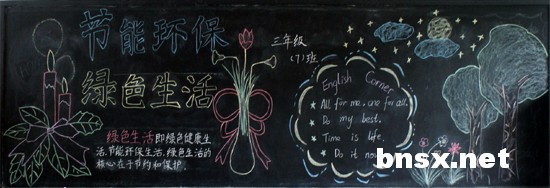 节能环保
绿色生活
三年级
(7)班
绿色生活即绿色健康生
活,节能环保生活,绿色生活的
核心在于节约和保护。
English Corner
★ All for me, one for all.
Do my best.
★ Time is life.
★ Do it now
bnsx.net